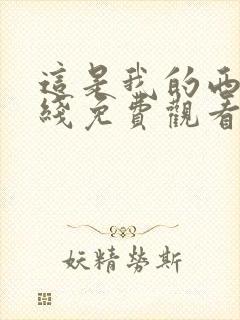 這是我的西
綫免費觀看
妖精勞斯